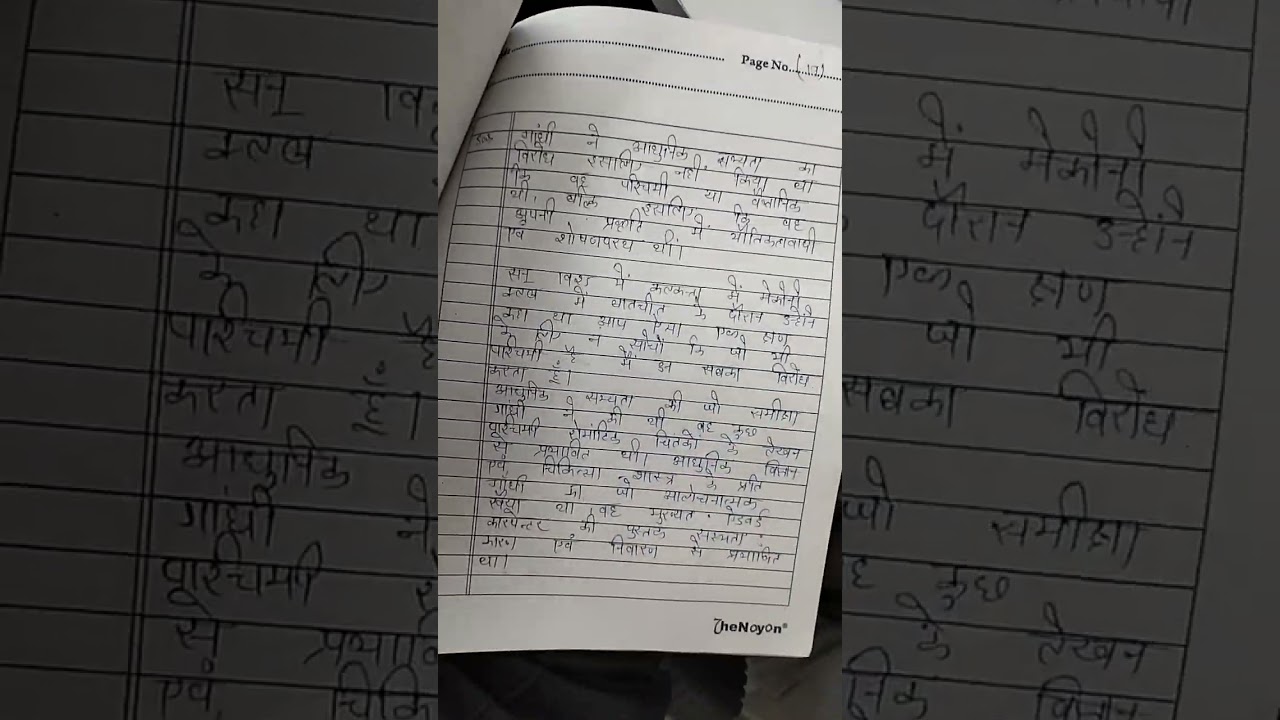 Page No. (17)
गांधी ने आधुनिक सभ्यता का
विरोध इसलिए नहीं किया था
कि वह पश्चिमी या वैज्ञानिक
थी, बल्कि इसलिए कि वह
अपनी प्रकृति में भौतिकतावादी
एवं शोषणपरथ थी।
सन् में कलकत्ता में मेकोनो
क्लब में बातचीत के दौरान उन्होंने
कहा था आप ऐसा एक क्षण
के लिए न सोचो कि जो भी
पश्चिमी है में उन सबका विरोध
करता हूँ।
आधुनिक सभ्यता की जो समीक्षा
गांधी ने की थी वह कुछ
पूर्रचिमी रोमांटिक चिंतकों के लेखन
से प्रभावित थी। आधुनिक विज्ञान
एवं चिकित्सा शास्त्र के प्रति
गांधी का जो आलोचनात्मक
था वह मुख्यत: एडवर्ड
कारपेन्टर की पुस्तक सभ्यता:
कारण एवं निवारण से प्रभावित
था।
TheNoyon®